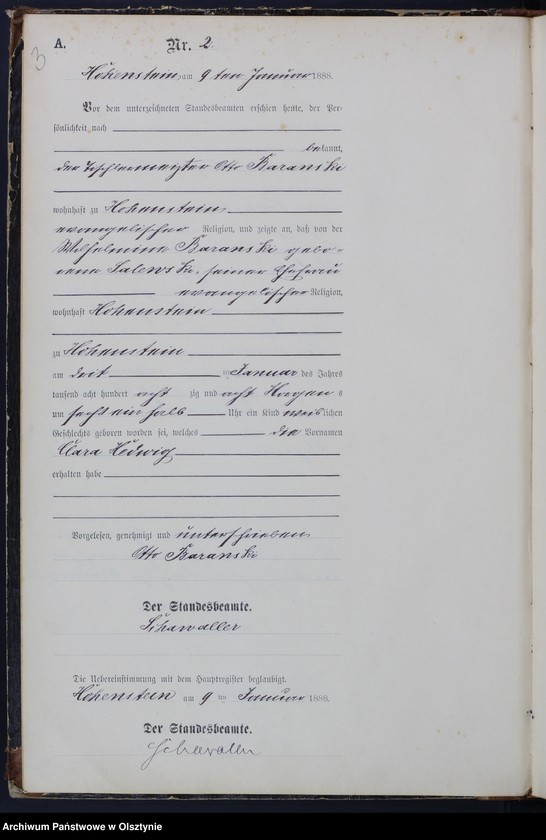 3
A. Nr. 2.
Hohenstein, am 9 ten Januar 1888.
Vor dem unterzeichneten Standesbeamten erschien heute, der Per-
sönlichkeit nach
bekannt,
der Tischlermeister Otto Baranski
wohnhaft zu Hohenstein,
evangelischer Religion, und zeigte an, daß von der
Wilhelmine Baranski gebo-
rene Salewski, seiner Ehefrau
evangelischer Religion,
wohnhaft Hohenstein
zu Hohenstein
am drit ten Januar des Jahres
tausend acht hundert acht zig und acht Morgens
um sechs ein halb Uhr ein Kind weiblichen
Geschlechts geboren worden sei, welches die Vornamen
Clara Hedwig
erhalten habe
Vorgelesen, genehmigt und unterschrieben
Otto Baranski
Der Standesbeamte.
Schawaller
Die Uebereinstimmung mit dem Hauptregister beglaubigt.
Hohenstein am 9 ten Januar 1888.
Der Standesbeamte.
Schawaller
Archiwum Państwowe w Olsztynie